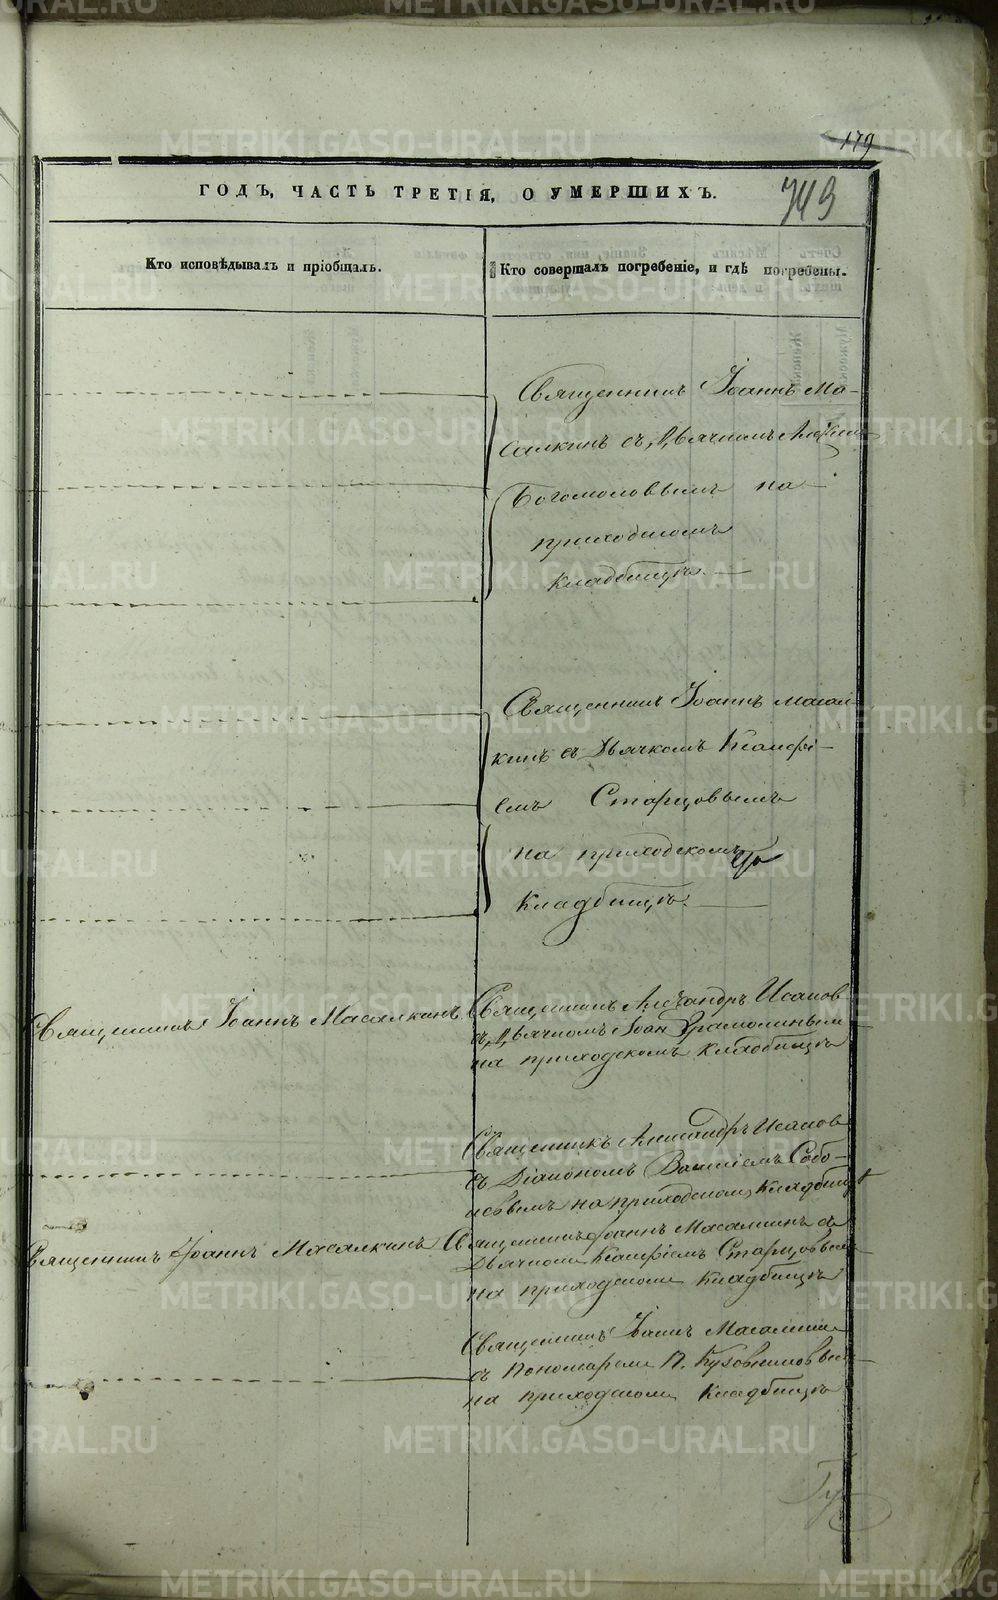 179
743
ГОДЪ, ЧАСТЬ ТРЕТІЯ, О УМЕРШИХЪ.
Кто исповѣдывалъ и пріобщалъ.
Кто совершалъ погребеніе, и гдѣ погребены.
Священникъ Іоаннъ Ма-
салкинъ съ Дьячкомъ
Богомоловымъ на
приходскомъ
кладбищѣ.
Священникъ Іоаннъ Масал
кинъ съ Дьячкомъ Ксанфі-
емъ Старцовымъ
на приходскомъ
кладбищѣ.
Священникъ Іоаннъ Масалкинъ.
Священникъ Александръ Исаков
съ Дьячкомъ Іоан
на приходскомъ кладбищѣ
Священникъ Александръ Исаков
съ Діакономъ Василіемъ Собо-
левымъ на приходскомъ кладбищѣ
Священникъ Іоаннъ Масалкинъ
Священникъ Іоаннъ Масалкинъ съ
Дьячкомъ Ксанфіемъ Старцовымъ
на приходскомъ кладбищѣ
Священникъ Іоаннъ Масалкинъ
съ Пономаремъ П.
на приходскомъ кладбищѣ
METRIKI.GASO-URAL.RU